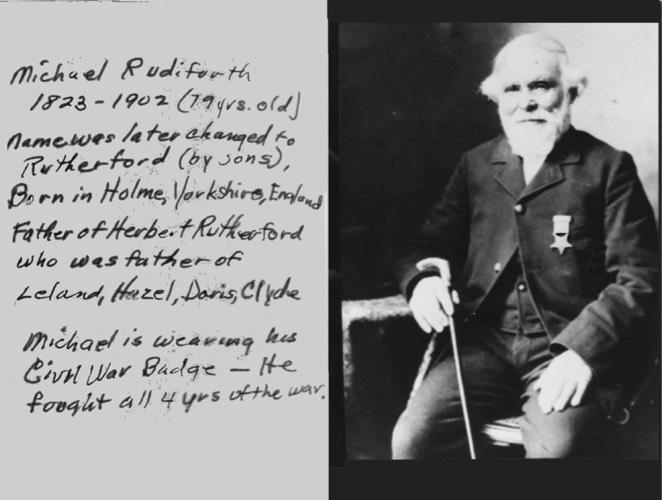 Michael Rudiforth
1823-1902 (79yrs.old)
name was later changed to
Rutherford (by sons),
Born in Holme, Yorkshire, England
Father of Herbert Rutherford
who was father of
Leland, Hazel, Doris, Clyde
Michael is wearing his
Civil War Badge - He
fought all 4 yrs of the war.